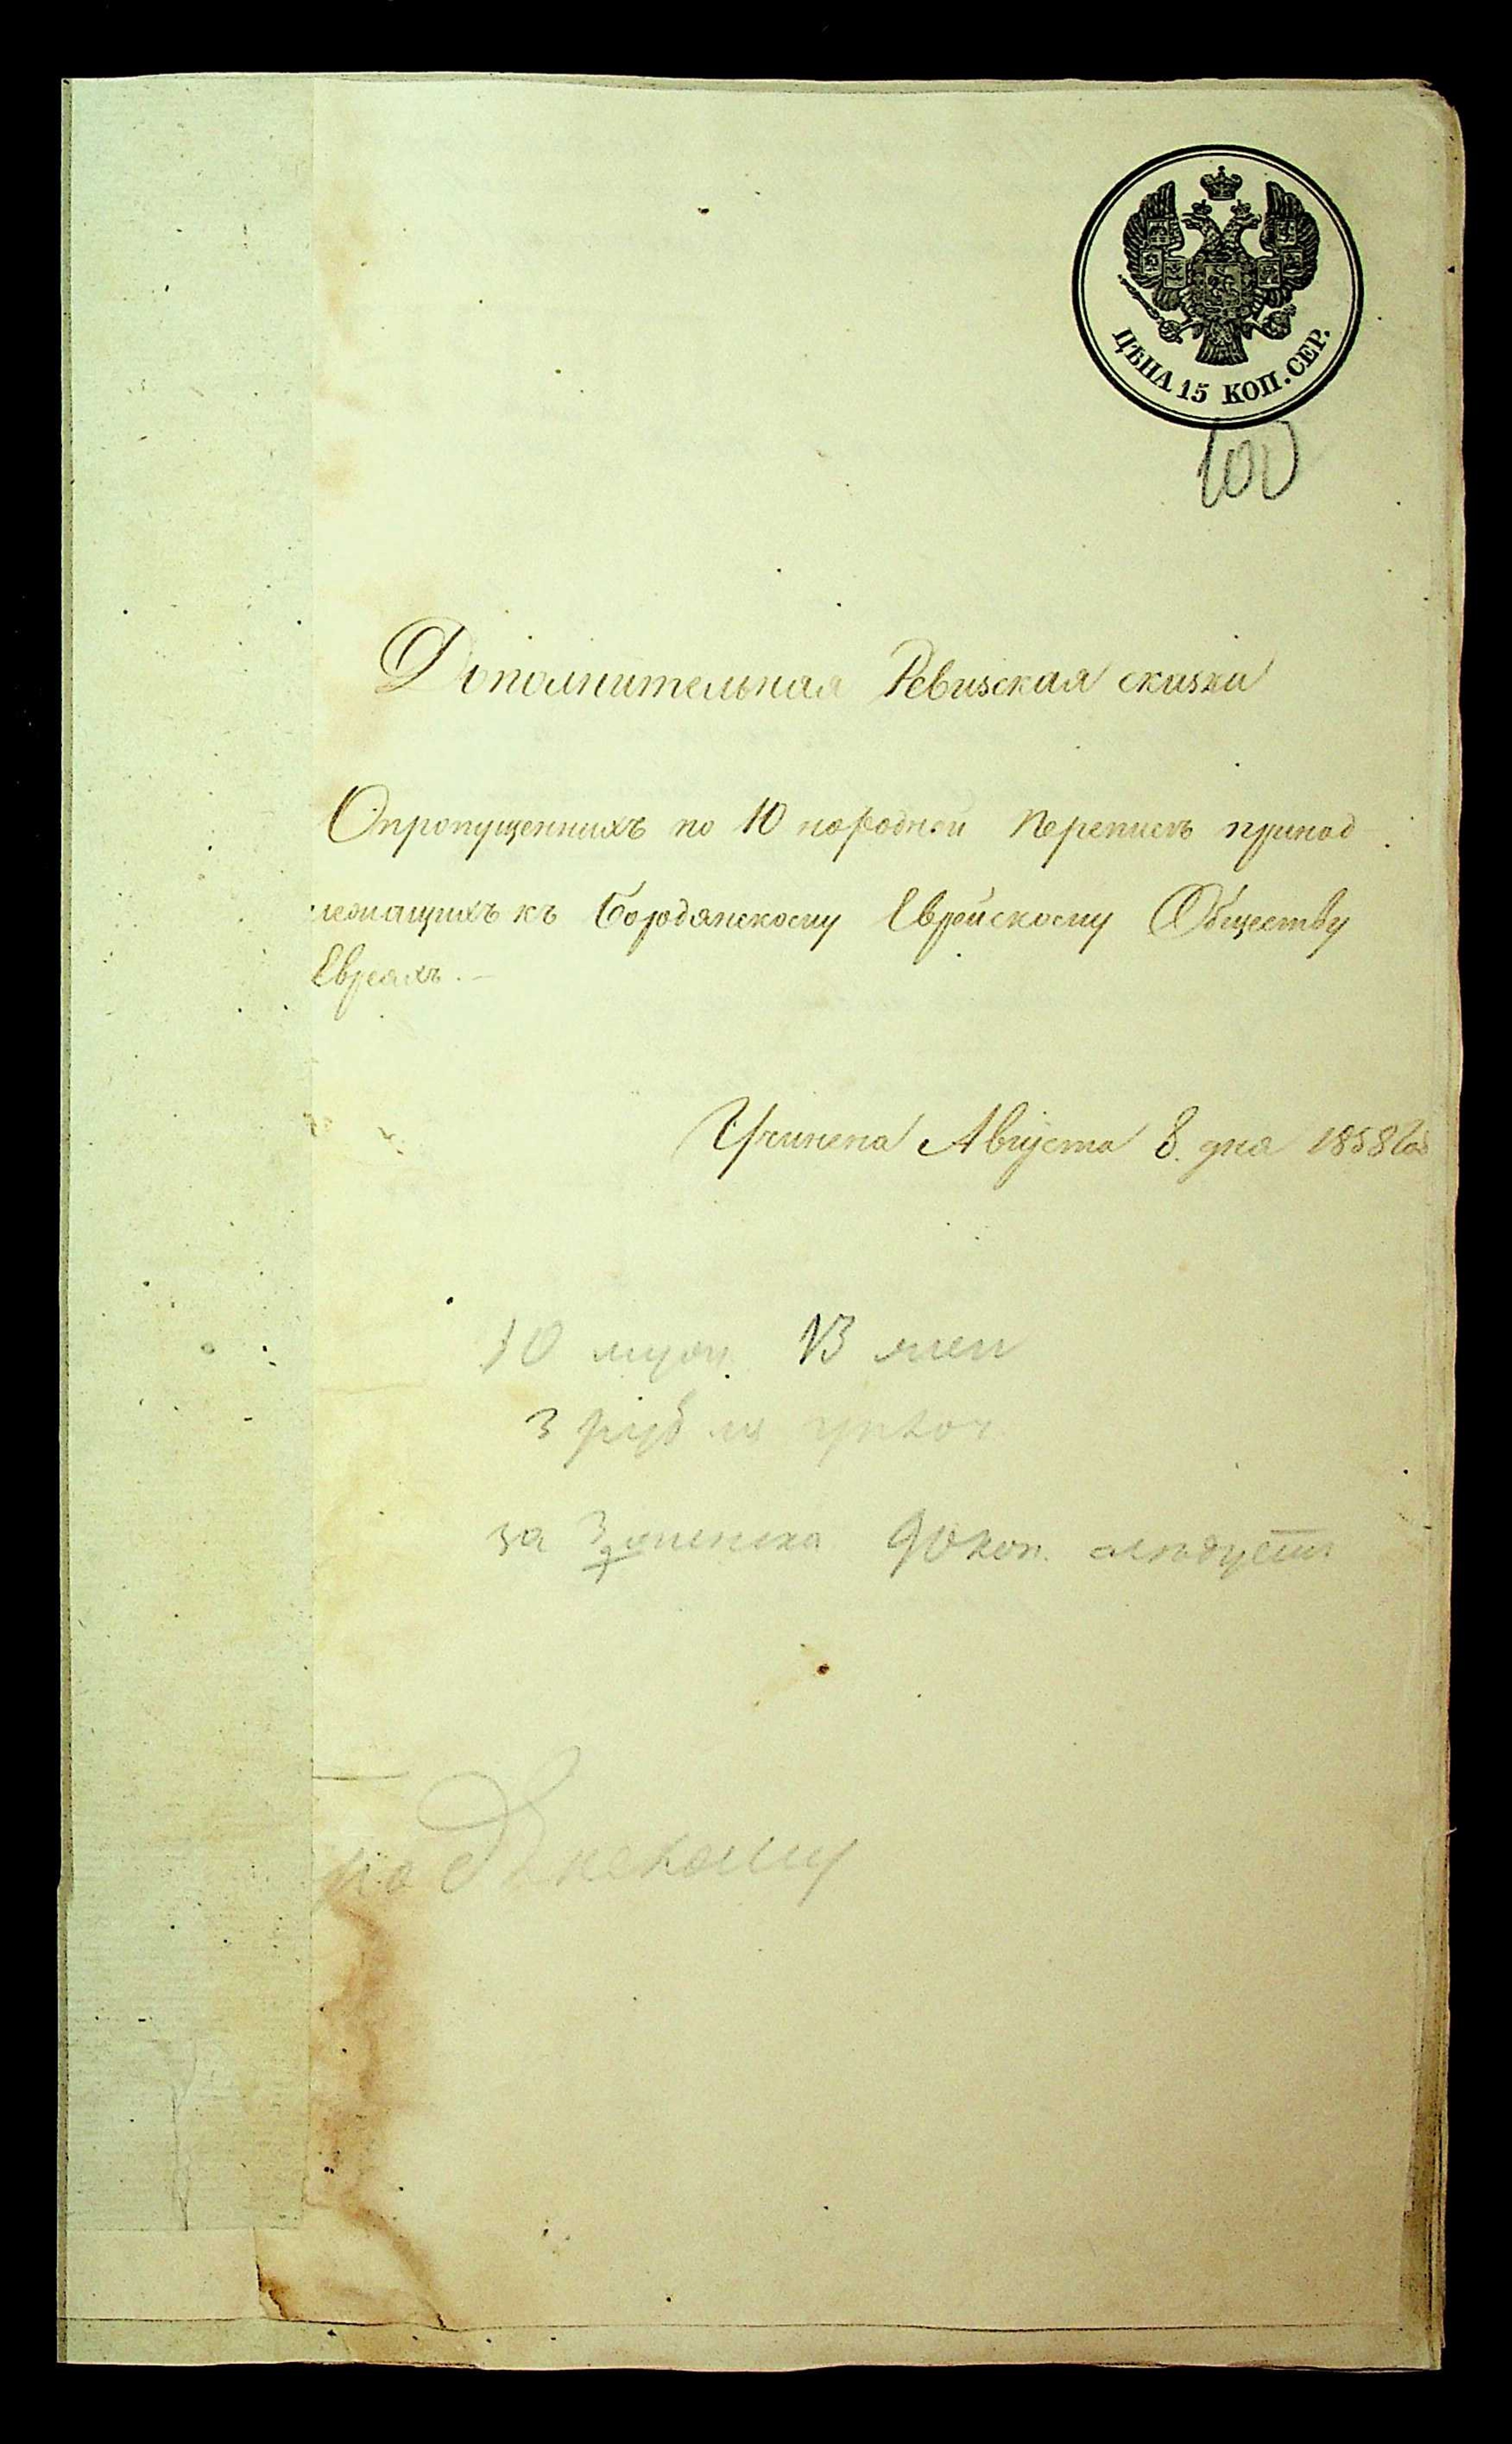 ЦѢНА 15 КОП. СЕР.
100
Дополнительная Ревизская сказка
Опропущенныхъ по 10 народной переписѣ принад
лежащихъ къ Бородянскому Еврейскому Обществу
Евреяхъ.—
Учинена Августа 8. дня 1858 год
10 муж. 13 жен
3 рубля
за 3 90 коп. слѣдуетъ
по